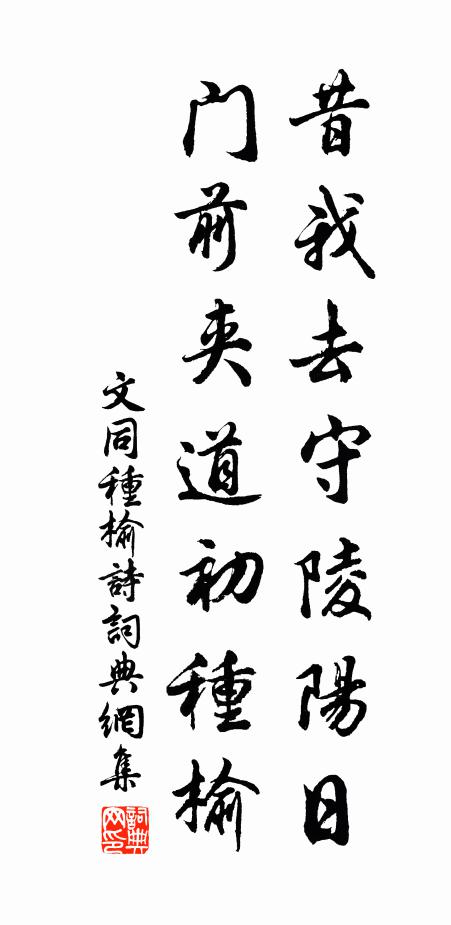 昔我去守陵陽日
門前夾道初種榆
文同種榆詩詞典網集
詞典
网印